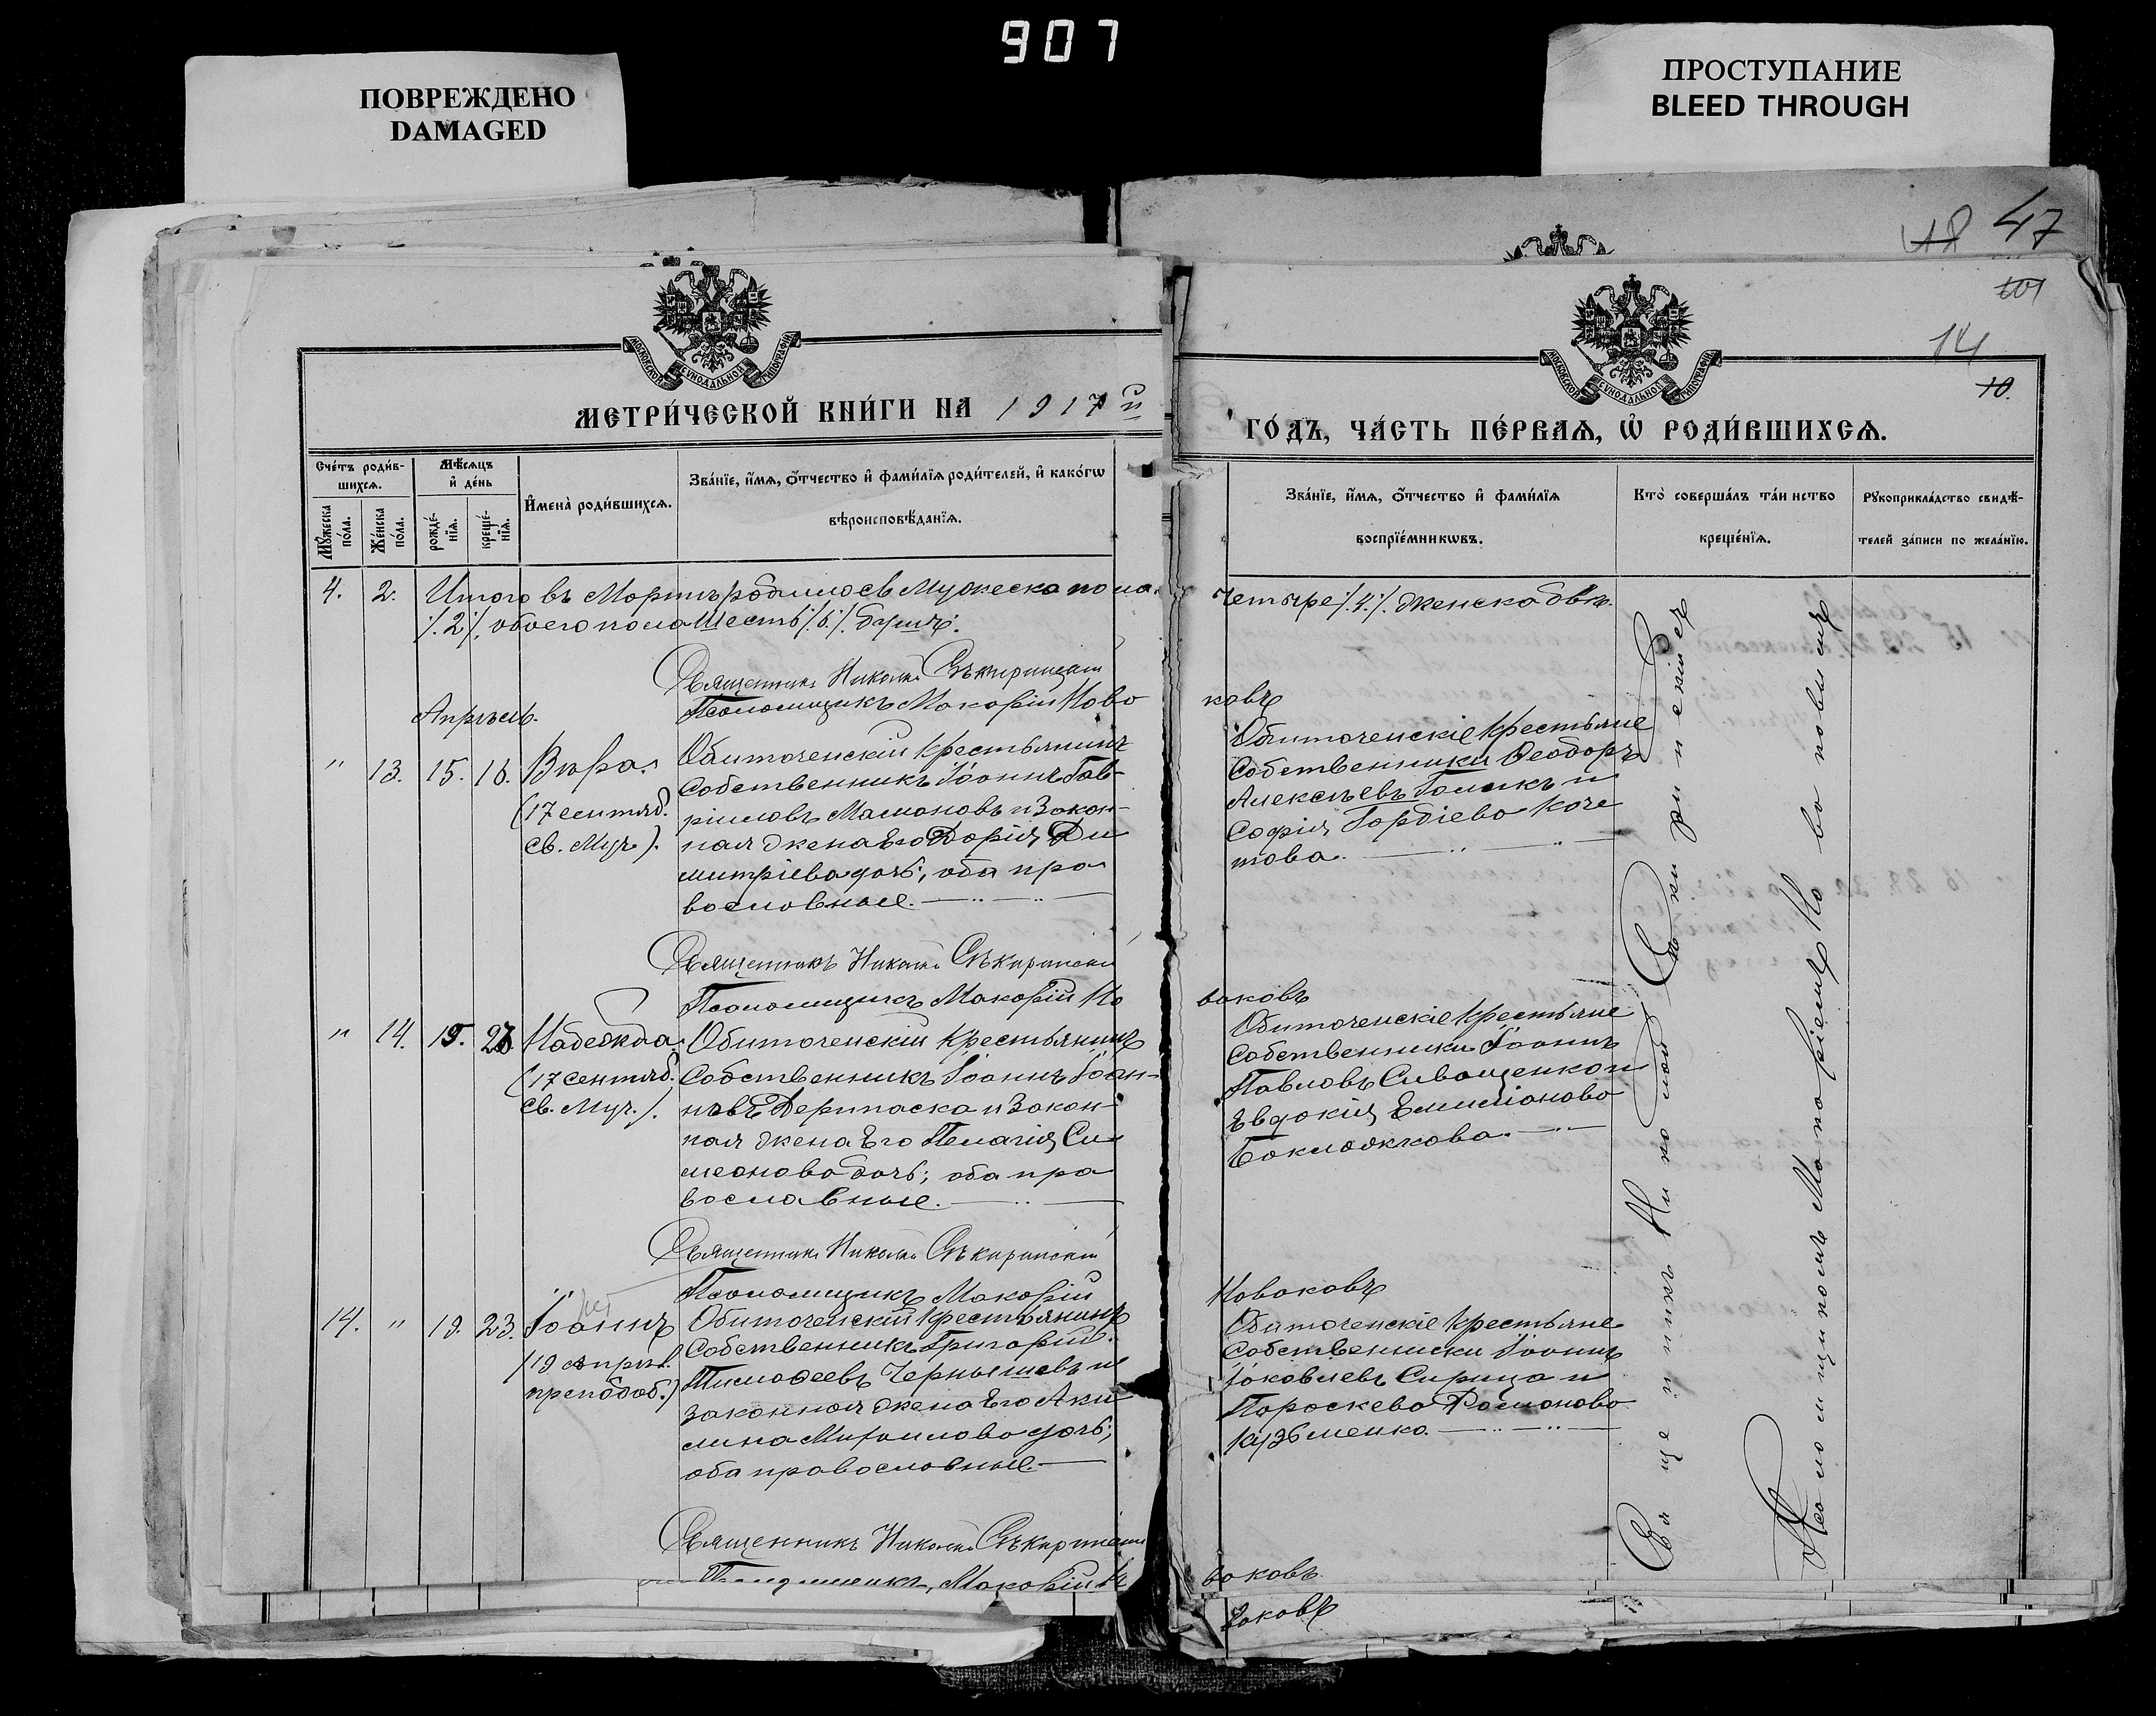 907
ПОВРЕЖДЕНО
DAMAGED
ПРОСТУПАНИЕ
BLEED THROUGH
47
101
14
10.
МОСКОВСКОЙ СѴНОДАЛЬНОЙ ТИПОГРАФІИ
МОСКОВСКОЙ СѴНОДАЛЬНОЙ ТИПОГРАФІИ
МЕТРИ́ЧЕСКОЙ КНИ́ГИ НА 1917й
ГО́ДЪ, ЧА́СТЬ ПЕ́РВАЯ, Ѡ҆ РОДИ́ВШИХСЯ.
Сче́тъ роди́в-
шихся.
Мѣ́сяцъ
и҆ де́нь
Мꙋ́жеска
по́ла.
Же́нска
по́ла.
рожде́-
нїя.
креще́-
нїя.
И҆мена̀ роди́вшихся.
Зва́нїе, и҆́мя, ѻ҆́тчество и҆ фами́лїя роди́телей, и҆ како́гѡ
вѣроисповѣ́данїя.
Зва́нїе, и҆́мя, ѻ҆́тчество и҆ фами́лїя
воспрїе́мникѡвъ.
Кто̀ соверша́лъ та́инство
креще́нїя.
Рꙋкоприкла́дство свидѣ́-
телей за́писи по жела́нїю.
4. 2. Итого въ Мартѣ родилось Мужеска пола
четыре /.4./. женска двѣ
/.2./, обоего пола Шесть /.6./. душъ.
Священникъ Николай Сѣкиринскій
Псаломщикъ Макарій Нова
ковъ
Апрѣль.
" 13. 15. 16. Вѣра.
(17 сентяб.
св. Муч.).
Обиточенскій крестьянинъ
Собственникъ Іоаннъ Гав-
ріиловъ Мамоновъ и Закон-
ная жена Его Дарія Ди
митріева дочь; оба пра
вославные.
Обиточенскіе Крестьяне
Собственники Ѳеодоръ
Алексѣевъ Голикъ и
Софія Гордіева Коче
това.
Священникъ Николай Сѣкиринскій
Псаломщикъ Макарій Но
ваковъ
" 14. 19. Надежда.
(17 Сентяб.
св. Муч.).
Обиточенскій крестьянинъ
Собственникъ Іоаннъ Іоан-
новъ Дерипаска и Закон-
ная жена Его Пелагія Си
меонова дочь; оба пра
вославные.
Обиточенскіе Крестьяне
Собственники Іоаннъ
Павловъ Сиващенко и
Евдокія Емиліанова
Баклажкова.
Священникъ Николай Сѣкиринскій
Псаломщикъ Макарій
Новаковъ
14. " 19. 23. Іоаннъ
(19 апрѣл.
преподоб.)
Обиточенскій Крестьянинъ
Собственникъ Григорій
Тимоѳеевъ Чернышевъ и
законная жена Его Аки
лина Михаилова дочь;
оба православные.
Обиточенскіе Крестьяне
Собственники Іоаннъ
Іаковлевъ Сирица и
Параскева Романова
Кузьменко.
Священникъ Николай Сѣкиринскій
Псаломщикъ Макарій Но
ваковъ
ваковъ
Священникъ Николай Сѣкиринскій
Псаломщикъ Макарій Новаковъ